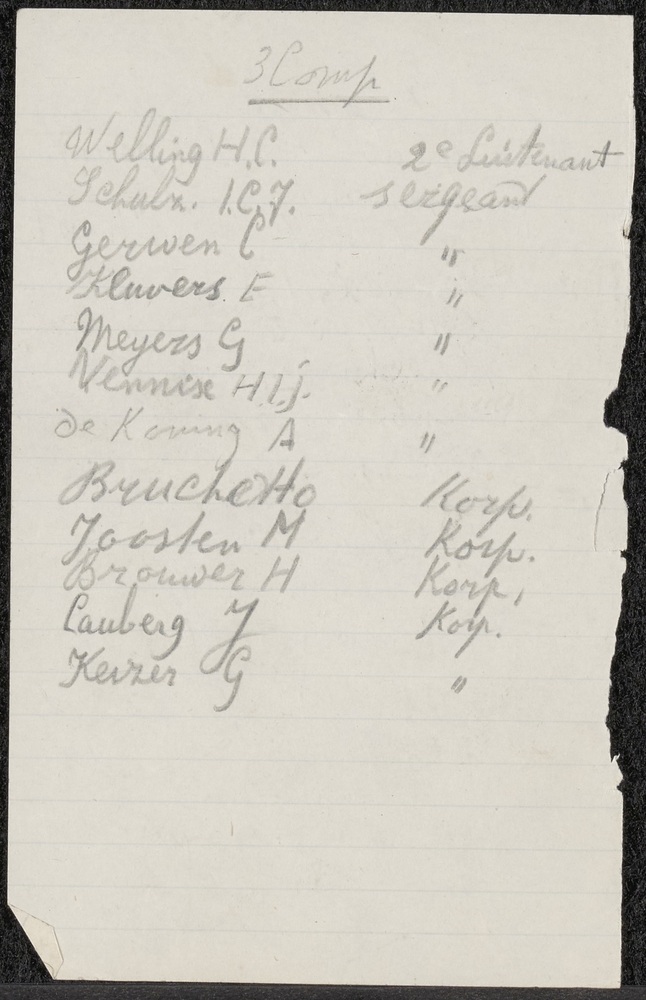 3 Comp
Welling H.C. 2e Luitenant
Schulz. I.C.J. sergeant
Gerwen C "
Kluvers E "
Meyers G "
Vennix H.I.j. "
de Koning A "
Bruchetto Korp.
Joosten M Korp.
Brouwer H Korp.
Cauberg J Korp.
Keizer G "